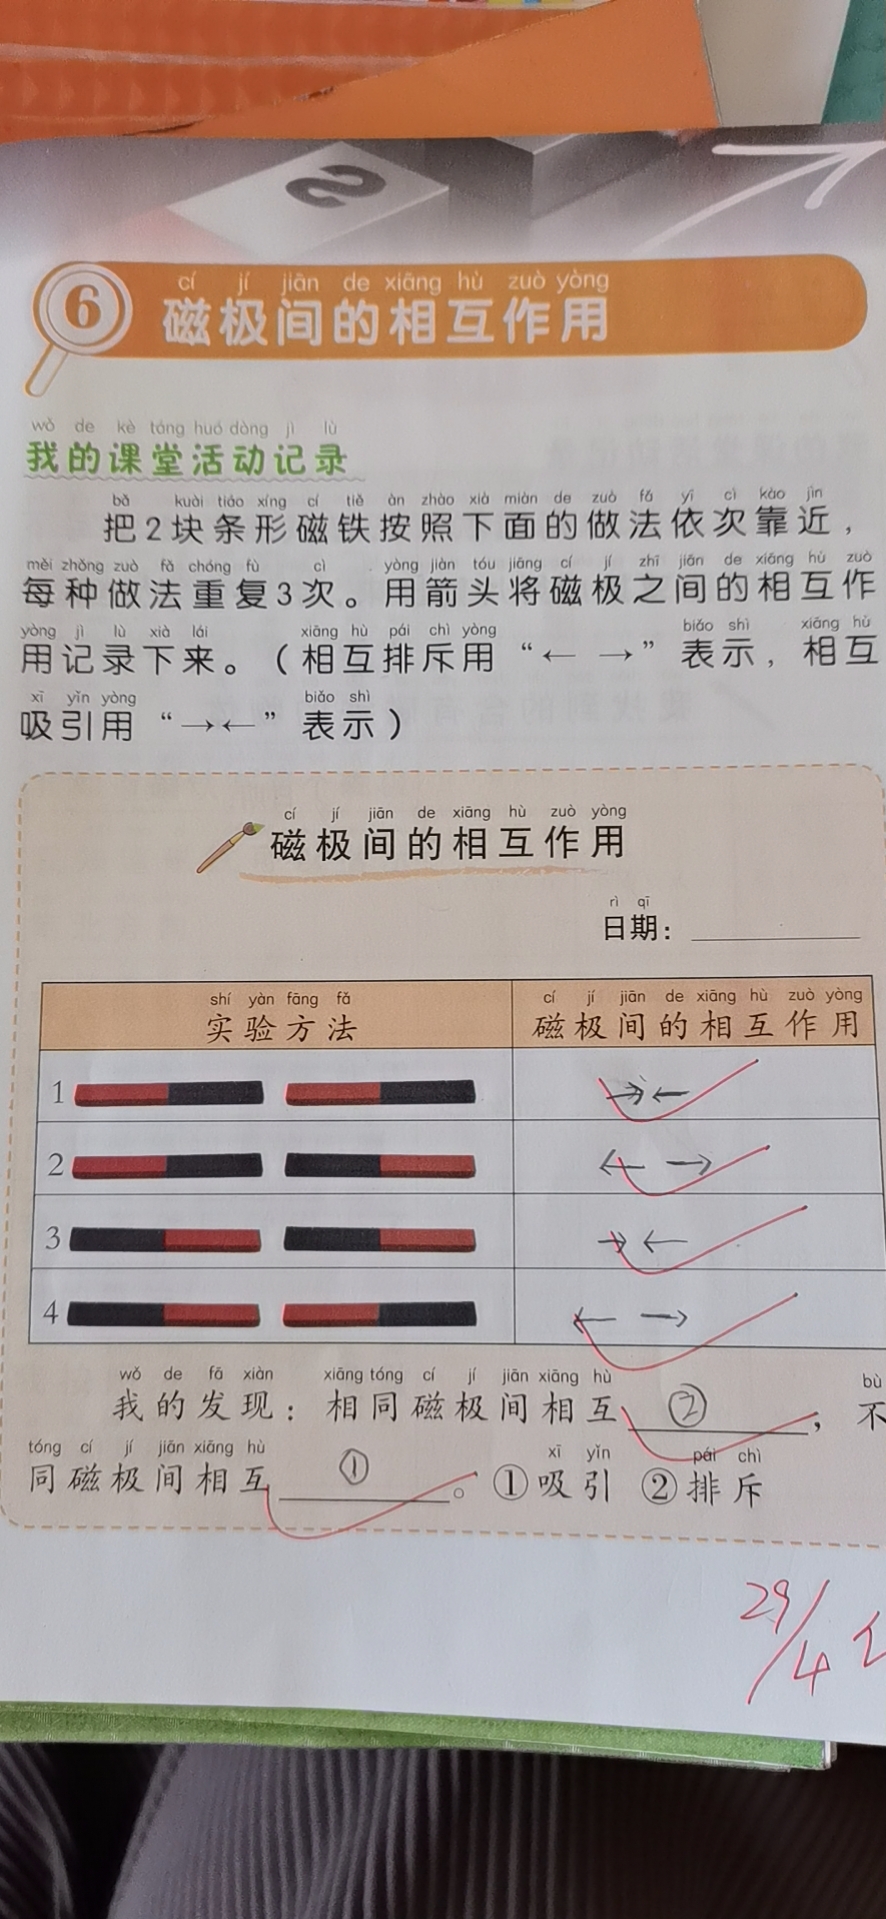 2
cí jí jiān de xiāng hù zuò yòng
6 磁极间的相互作用
wǒ de kè táng huó dòng jì lù
我的课堂活动记录
bǎ kuài tiáo xíng cí tiě àn zhào xià miàn de zuò fǎ yī cì kào jìn
把2块条形磁铁按照下面的做法依次靠近，
měi zhǒng zuò fǎ chóng fù cì yòng jiàn tóu jiāng cí jí zhī jiān de xiāng hù zuò
每种做法重复3次。用箭头将磁极之间的相互作
yòng jì lù xià lái xiāng hù pái chì yòng biǎo shì xiāng hù
用记录下来。（相互排斥用“← →”表示，相互
xī yǐn yòng biǎo shì
吸引用“→←”表示）
cí jí jiān de xiāng hù zuò yòng
磁极间的相互作用
rì qī
日期：
shí yàn fāng fǎ cí jí jiān de xiāng hù zuò yòng
实验方法 磁极间的相互作用
1 →←
2 ← →
3 →←
4 ← →
wǒ de fā xiàn xiāng tóng cí jí jiān xiāng hù bù
我的发现：相同磁极间相互②，不
tóng cí jí jiān xiāng hù xī yǐn pái chì
同磁极间相互①。①吸引 ②排斥
29/4